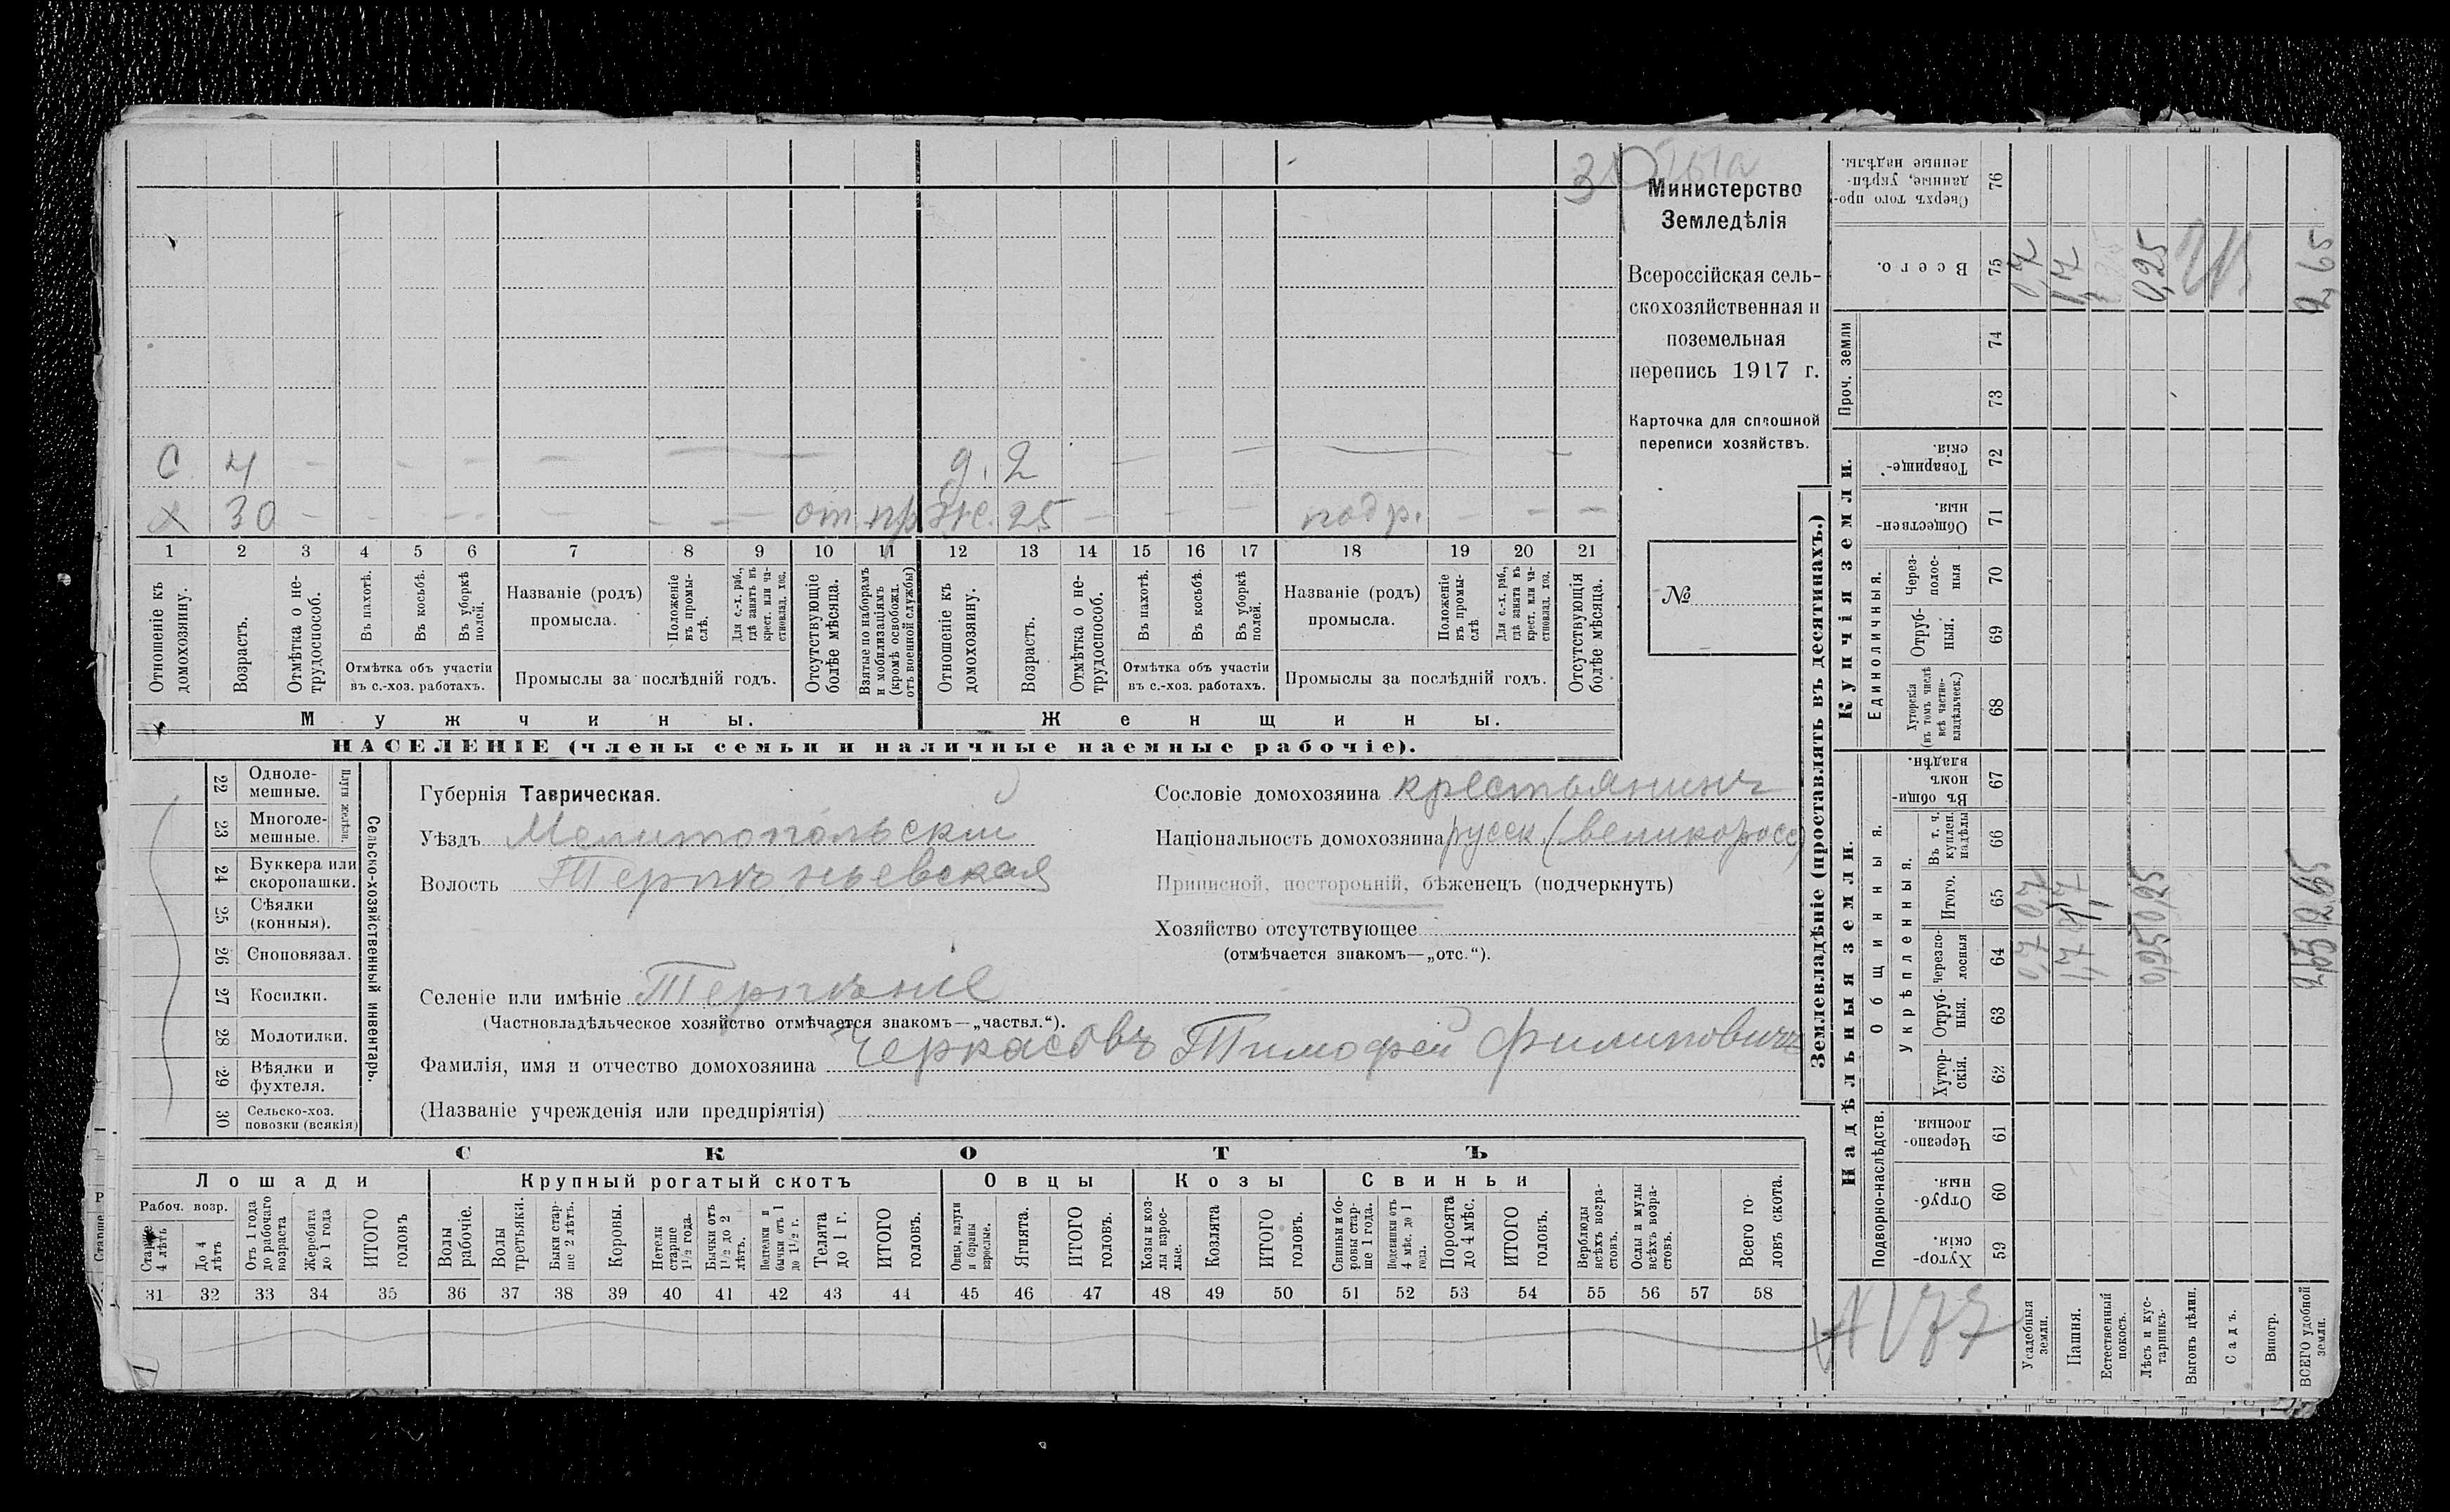 Министерство
Земледѣлія
Всероссійская сель-
скохозяйственная и
поземельная
перепись 1917 г.
Карточка для сплошной
переписи хозяйствъ.
№
С 4 — — — — — — — — д. 2 — — — —
Х 30 — — — — — — — от. пр. Же. 25 — — — — подр. — — —
1 2 3 4 5 6 7 8 9 10 11 12 13 14 15 16 17 18 19 20 21
Отношеніе къ домохозяину.
Возрастъ.
Отмѣтка о не-трудоспособ.
Въ пахотѣ.
Въ косьбѣ.
Въ уборкѣ полей.
Отмѣтка объ участіи
въ с.-хоз. работахъ.
Названіе (родъ)
промысла.
Положеніе въ промы-слѣ.
Для с.-х. раб., гдѣ занятъ въ крест. или ча-стновлад. хоз.
Промыслы за послѣдній годъ.
Отсутствующіе болѣе мѣсяца.
Взятые по наборамъ и мобилизаціямъ (кромѣ освобожд. отъ военной службы)
Отношеніе къ домохозяину.
Возрастъ.
Отмѣтка о не-трудоспособ.
Въ пахотѣ.
Въ косьбѣ.
Въ уборкѣ полей.
Отмѣтка объ участіи
въ с.-хоз. работахъ.
Названіе (родъ)
промысла.
Положеніе въ промы-слѣ
Для с.-х. раб., гдѣ занята въ крест. или ча-стновлад. хоз.
Промыслы за послѣдній годъ.
Отсутствующія болѣе мѣсяца.
Мужчины. Женщины.
НАСЕЛЕНІЕ (члены семьи и наличные наемные рабочіе).
Сельско-хозяйственный инвентарь.
Плуги желѣзн.
22 Одноле-мешные.
23 Многоле-мешные.
24 Буккера или скоропашки.
25 Сѣялки (конныя).
26 Сноповязал.
27 Косилки.
28 Молотилки.
29 Вѣялки и фухтеля.
30 Сельско-хоз. повозки (всякія)
Губернія Таврическая.
Уѣздъ Мелитопольскій
Волость Терпѣньевская
Селеніе или имѣніе Терпѣніе
(Частновладѣльческое хозяйство отмѣчается знакомъ—„частвл.“).
Фамилія, имя и отчество домохозяина Черкасовъ Тимофей Филиповичъ
(Названіе учрежденія или предпріятія)
Сословіе домохозяина крестьянинъ
Національность домохозяина русск. (великоросс)
Приписной, посторонній, бѣженецъ (подчеркнуть)
Хозяйство отсутствующее
(отмѣчается знакомъ—„отс.“).
СКОТЪ
Лошади Крупный рогатый скотъ Овцы Козы Свиньи
Рабоч. возр.
Старше 4 лѣтъ
До 4 лѣтъ
Отъ 1 года до рабочаго возраста
Жеребята до 1 года
ИТОГО головъ
Волы рабочіе.
Волы третьяки.
Быки стар-ше 2 лѣтъ.
Коровы.
Нетели старше 1½ года.
Бычки отъ 1½ до 2 лѣтъ.
Подтелки и бычки отъ 1 до 1½ г.
Телята до 1 г.
ИТОГО головъ.
Овцы, валухи и бараны взрослые.
Ягнята.
ИТОГО головъ.
Козы и коз-лы взрос-лые.
Козлята
ИТОГО головъ.
Свиньи и бо-ровы стар-ше 1 года.
Подсвинки отъ 4 мѣс. до 1 года.
Поросята до 4 мѣс.
ИТОГО головъ.
Верблюды всѣхъ возра-стовъ.
Ослы и мулы всѣхъ возра-стовъ.
Всего го-ловъ скота.
31 32 33 34 35 36 37 38 39 40 41 42 43 44 45 46 47 48 49 50 51 52 53 54 55 56 57 58
Землевладѣніе (проставлять въ десятинахъ.)
Надѣльныя земли.
Подворно-наслѣдств.
Хутор-скія. 59
Отруб-ныя. 60
Черезпо-лосныя. 61
Общинныя.
Укрѣпленныя.
Хутор-скія. 62
Отруб-ныя. 63
Черезпо-лосныя 64
Итого. 65
Въ т. ч. куплен. надѣлы 66
Въ общи-номъ владѣн. 67
Купчія земли.
Единоличныя.
Хуторскія (въ томъ числѣ всѣ частно-владѣльческ.) 68
Отруб-ныя. 69
Через-полос-ныя 70
Обществен-ныя. 71
Товарище-скія 72
Проч. земли
73
74
Всего. 75
Сверхъ того про-данные, укрѣп-ленные надѣлы. 76
Усадебныя земли. 0,7 0,7 0,7
Пашня. 1,7 1,7 1,7
Естественный покосъ.
Лѣсъ и кус-тарникъ. 0,25 0,25 0,25
Выгонъ цѣлин.
Садъ.
Виногр.
ВСЕГО удобной земли. 2,65 2,65 2,65